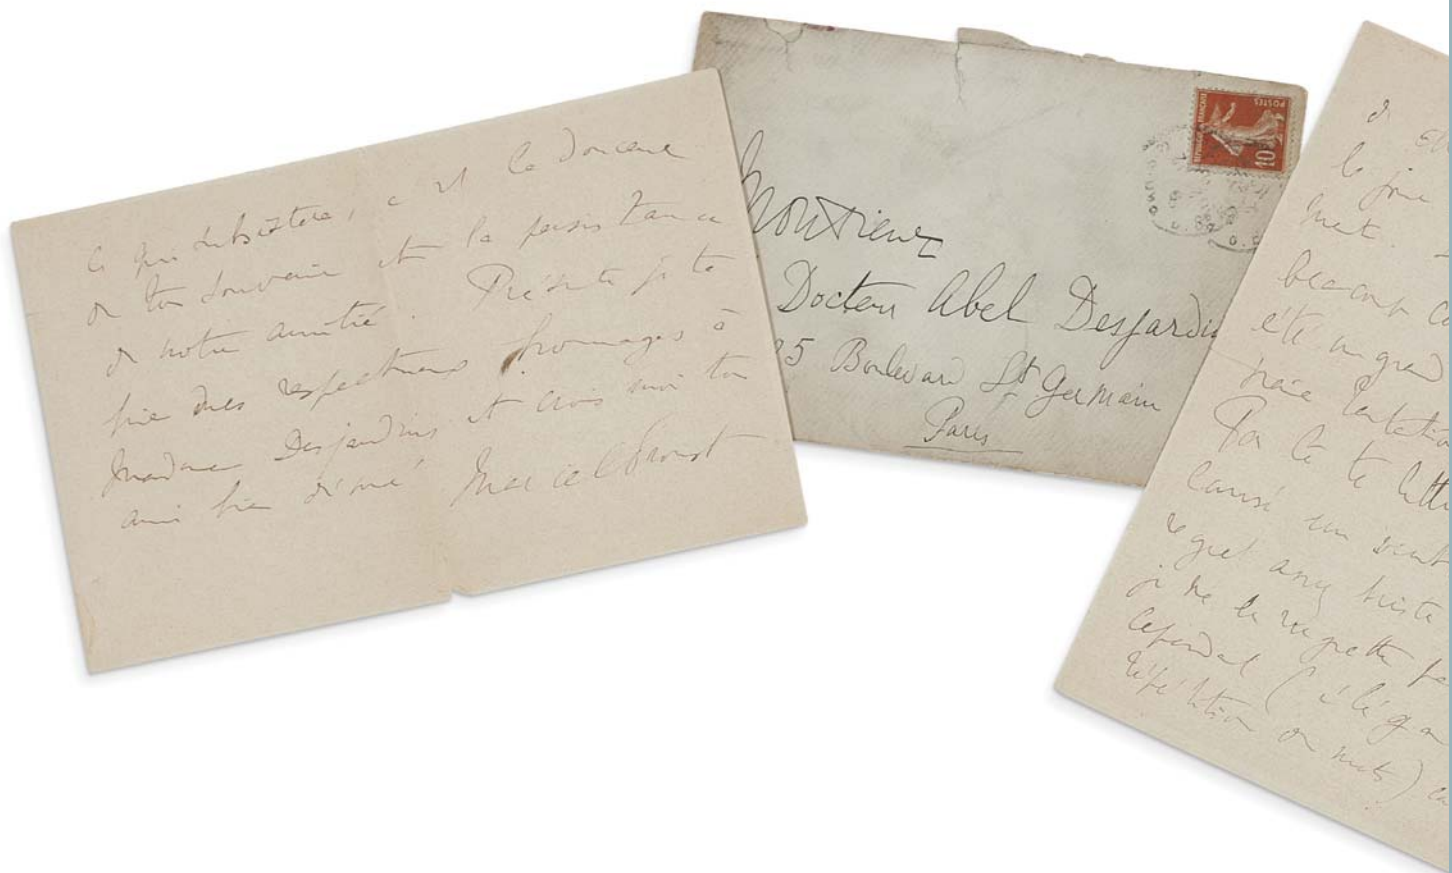 ce qui subsistera, c'est la douceur
de ton souvenir et la persistance
de notre amitié. Présente je te
prie mes respectueux hommages à
Madame Desjardins et crois moi ton
ami bien dévoué
Marcel Proust
POSTES
REPUBLIQUE FRANÇAISE
10
Monsieur
Docteur Abel Desjardin
25 Boulevard St Germain
Paris
de
le
beaucoup
été un grand
vraie tentation
Par ta lettre
causé un
regret assez triste
je ne le regrette
cependant (élégan
répétition de mots)